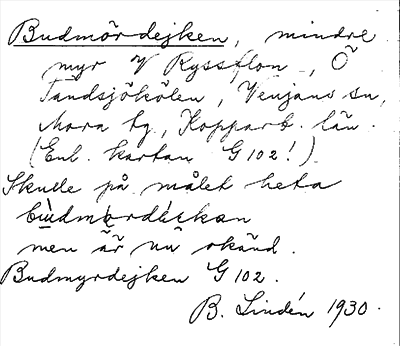 Budmördejken, mindre
myr V Ryssflon, Ö
Tandsjökölen, Venjans sn,
Mora tg., Kopparb. län.
(Enl. kartan G 102!)
Skulle på målet heta
men är nu okänd.
Budmyrdejken G 102.
B. Lindén 1930.